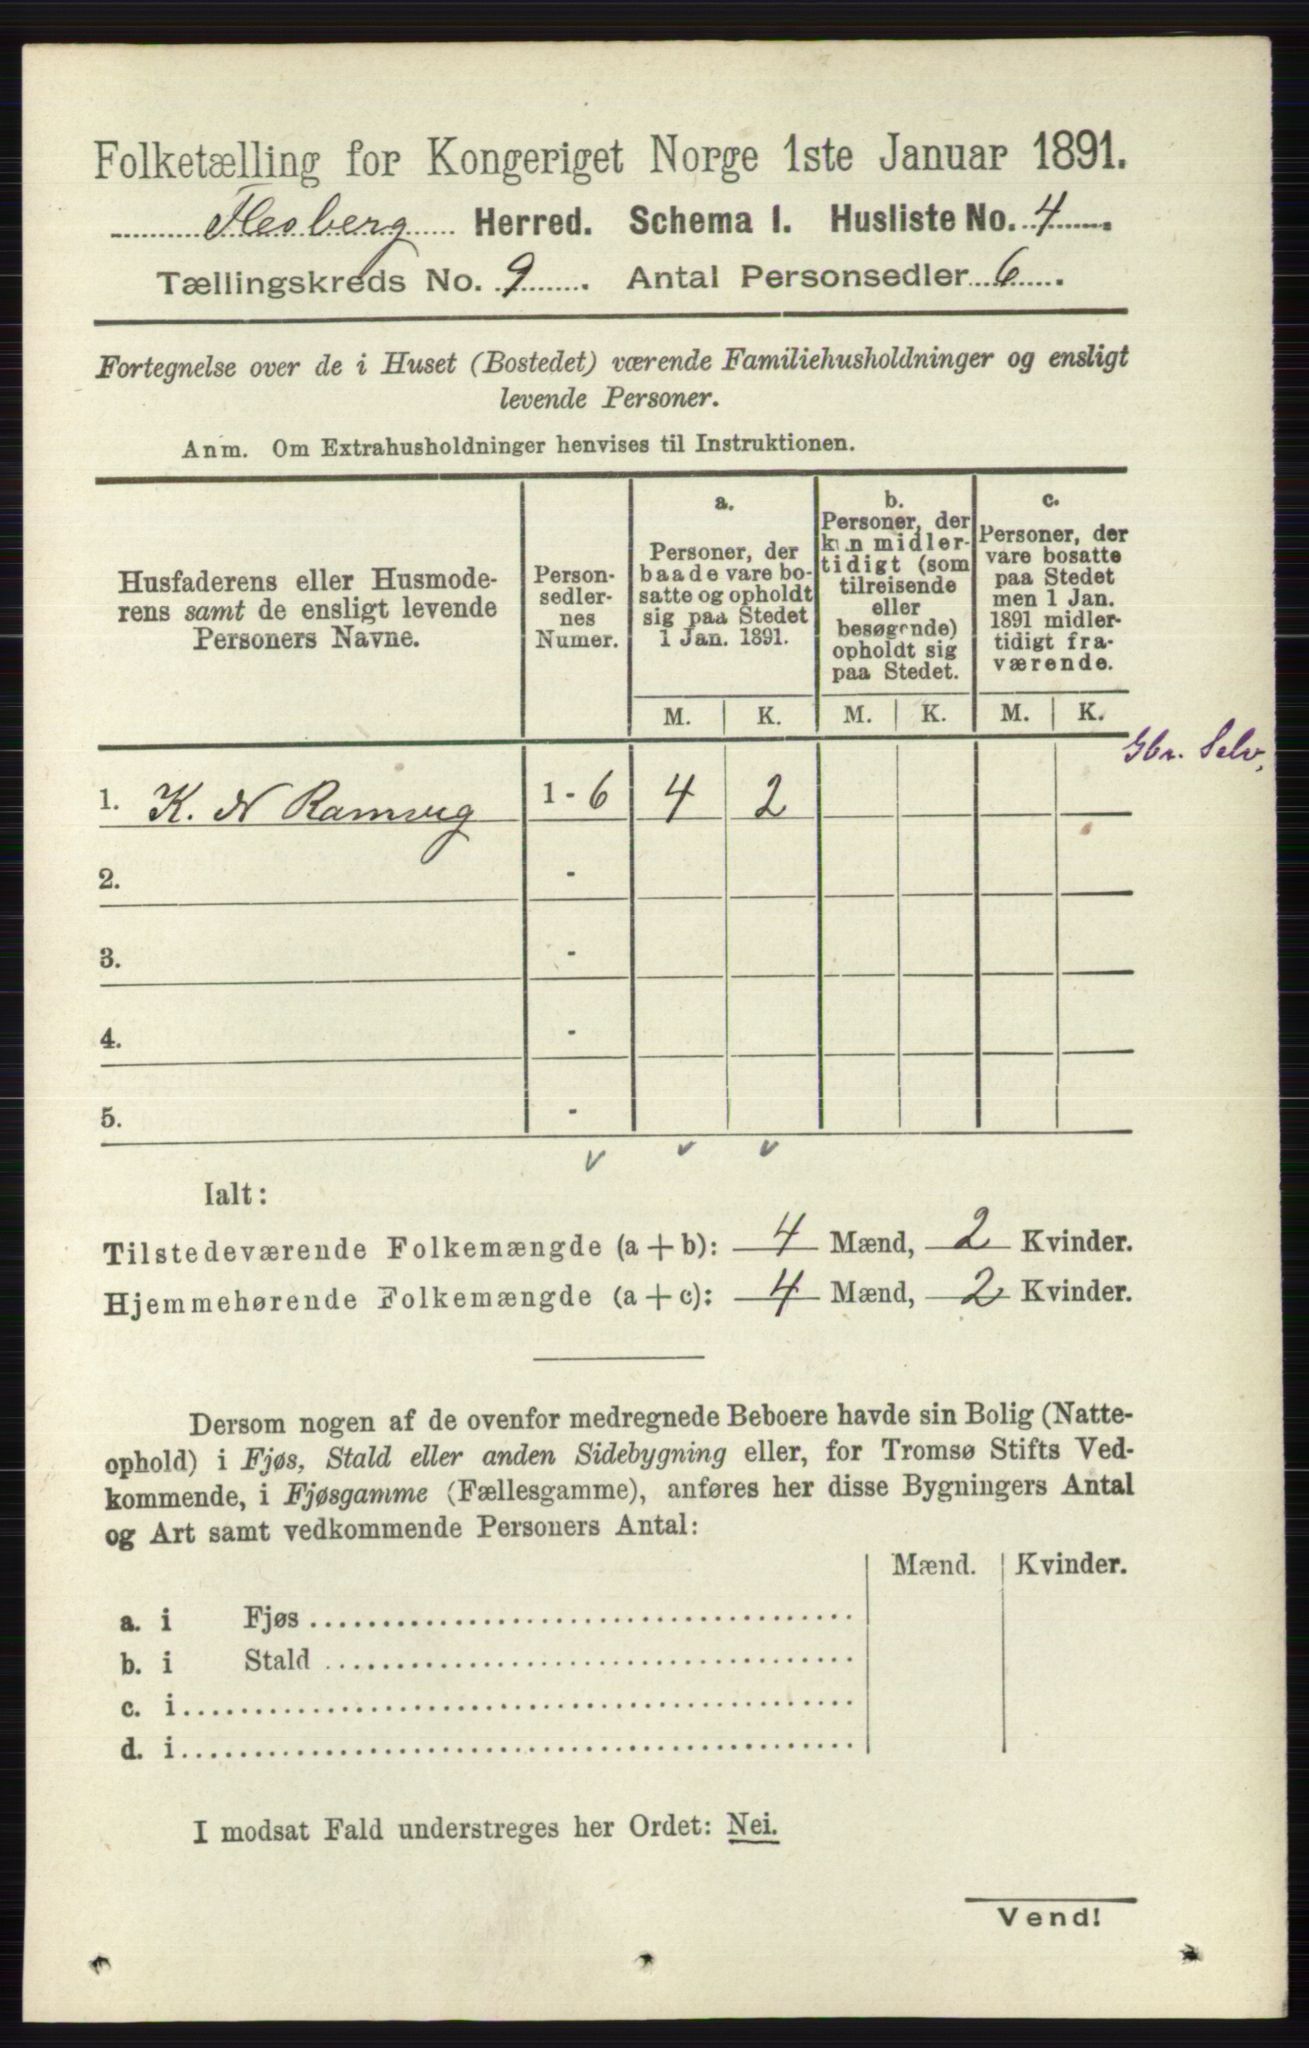 Folketælling for Kongeriget Norge 1ste Januar 1891.
Flesberg Herred. Schema I. Husliste No. 4
Tællingskreds No. 9. Antal Personsedler 6.
Fortegnelse over de i Huset (Bostedet) værende Familiehusholdninger og ensligt
levende Personer.
Anm. Om Extrahusholdninger henvises til Instruktionen.
Husfaderens eller Husmode-
rens samt de ensligt levende
Personers Navne.
Person-
sedler-
nes
Numer.
a.
Personer, der
baade vare bo-
satte og opholdt
sig paa Stedet
1 Jan. 1891.
b.
Personer, der
kun midler-
tidigt (som
tilreisende
eller
besøgende)
opholdt sig
paa Stedet.
c.
Personer, der
vare bosatte
paa Stedet
men 1 Jan.
1891 midler-
tidigt fra-
værende.
M. K. M. K. M. K.
Gbr. Selv.
1. K. N Ramvig 1 - 6 4 2
2. -
3. -
4. -
5. -
Ialt:
Tilstedeværende Folkemængde (a + b): 4 Mænd, 2 Kvinder.
Hjemmehørende Folkemængde (a + c): 4 Mænd, 2 Kvinder.
Dersom nogen af de ovenfor medregnede Beboere havde sin Bolig (Natte-
ophold) i Fjøs, Stald eller anden Sidebygning eller, for Tromsø Stifts Ved-
kommende, i Fjøsgamme (Fællesgamme), anføres her disse Bygningers Antal
og Art samt vedkommende Personers Antal:
Mænd. Kvinder.
a. i Fjøs
b. i Stald
c. i
d. i
I modsat Fald understreges her Ordet: Nei.
Vend!